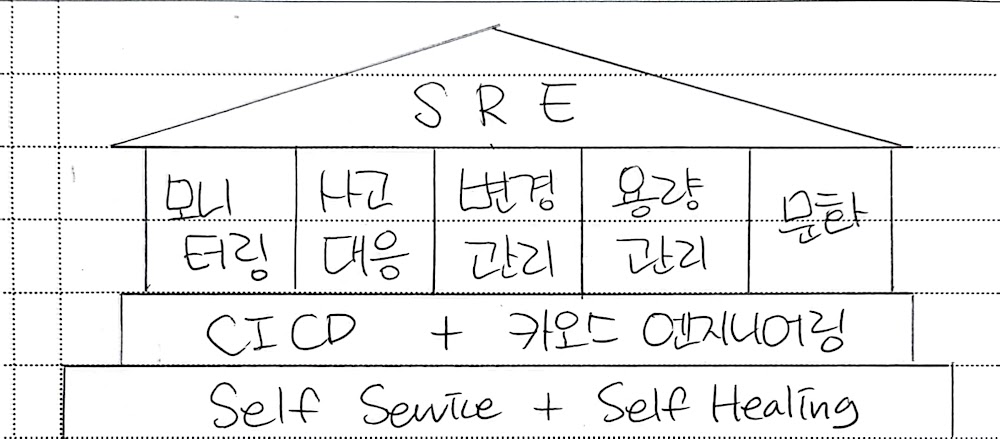 SRE
모니
터링
사고
대응
변경
관리
용량
관리
문화
CICD + 카오스 엔지니어링
Self Service + Self Healing